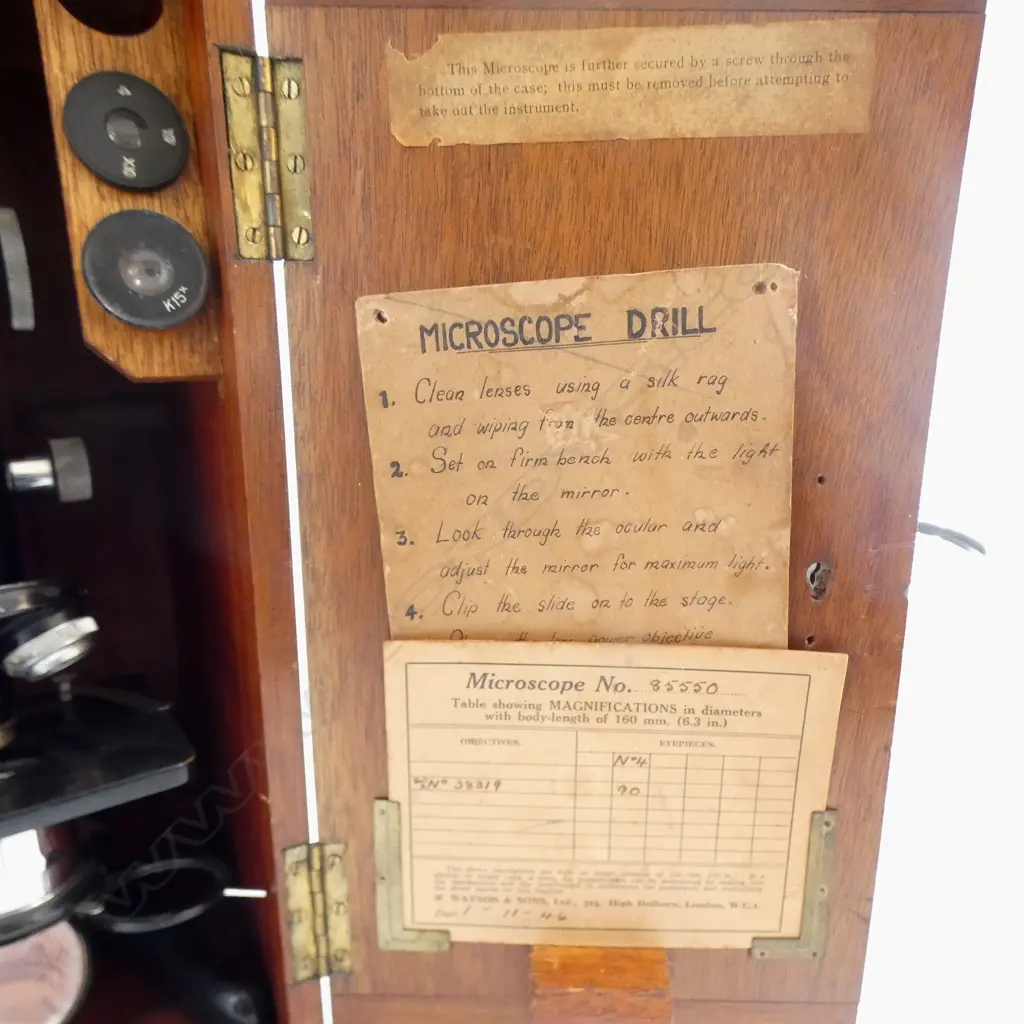 This Microscope is further secured by a screw through the
bottom of the case; this must be removed before attempting to
take out the instrument.
K15x
MICROSCOPE DRILL
1. Clean lenses using a silk rag
and wiping from the centre outwards.
2. Set on firm bench with the light
on the mirror.
3. Look through the ocular and
adjust the mirror for maximum light.
4. Clip the slide on to the stage.
power objective
Microscope No. 85550
Table showing MAGNIFICATIONS in diameters
with body-length of 160 mm. (6.3 in.)
OBJECTIVES. EYEPIECES.
No 4
No 38319 90
W. WATSON & SONS, Ltd., 313, High Holborn, London, W.C.1.
Date 1-11-46